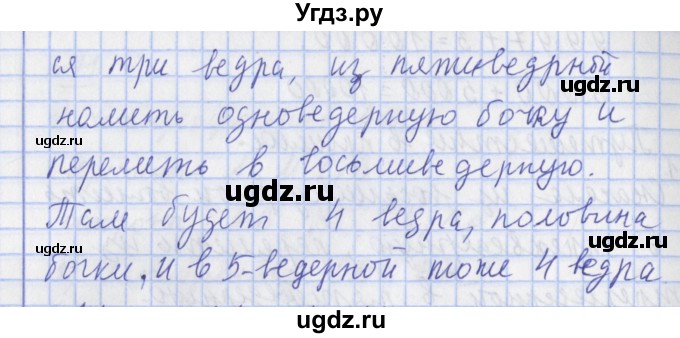 Угдз.ру
ся три ведра, из пятиведрный
налить одноведерную бочку и
ugdz.ru ugdz.ru
перелить в восьмиведерную.
ugdz.ru
Там будет 4 ведра, половина
ugdz.ru ugdz.ru
бочки. и в 5-ведерной тоже 4 ведра
ugdz.ru